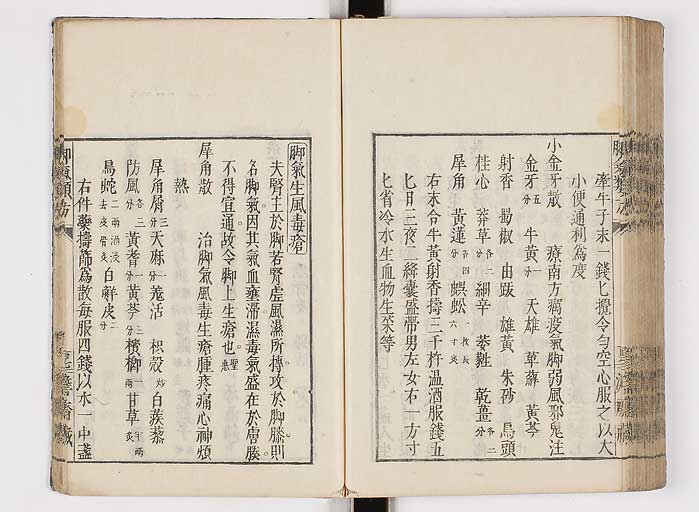 牽牛子末一錢匕攪令勻空心服之以大
小便通利爲度
小金牙散 療南方瘴疫氣脚弱風邪鬼注
金牙五分 牛黃一分 天雄 草薢 黃芩
射香 蜀椒 由跋 雄黃 朱砂 烏頭
桂心 莽草各二分 細辛 萎蕤 乾薑各二分
犀角 黃蓮各四分 蜈蚣一枚長六寸炙
右末合牛黃射香擣三千杵温酒服錢五
匕日三夜二絳囊盛帶男左女右一方寸
匕省冷水生血物生菜等
脚氣類方
脚氣生風毒瘡
夫腎主於脚若腎虛風濕所搏攻於脚膝則
名脚氣因其氣血壅滯濕毒氣盛在於膚腠
不得宣通故令脚上生瘡也聖惠
犀角散 治脚氣風毒生瘡腫疼痛心神煩
熱
犀角屑三分 天麻 羗活 枳殼 白蒺蔾
防風各三分 黃耆一分 黃芩三分 檳榔一兩 甘草半兩炙
烏蛇二兩酒浸去皮骨炙 白鮮皮二分
右件藥擣篩爲散每服四錢以水一中盞
脚氣類方